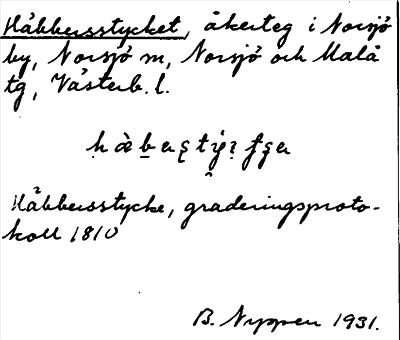 Håbbersstycket, åkerteg i Norsjö
by, Norsjö sn, Norsjö och Malå
tg, Västerb. l.
Håbbersstycke, graderingsproto-
koll 1810
B. Nyppen 1931.